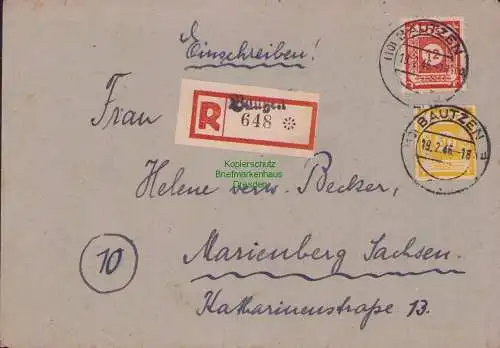 Einschreiben!
(10) BAUTZEN
12
Frau
R
Bautzen
648
(10) BAUTZEN
19.2.46.-18
Kopierschutz
Briefmarkenhaus
Dresden
Helene verw. Becker,
10
Marienberg Sachsen.
Katharinenstraße 13.